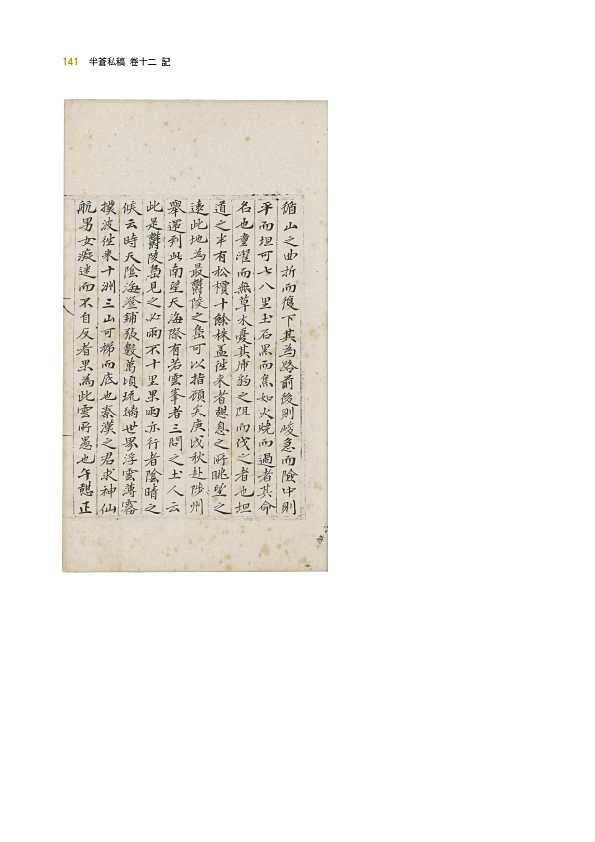 141 半蒼私稿 卷十二 記
循山之曲折而復下其為路前後則峻急而險中則
平而坦可七八里土石黑而焦如火燒而過者其命
名也童濯而無草水憂其乕豹之阻而伐之者也坦
道之半有松櫝十餘株盖徃來者憇息之所眺望之
遠此地為最欝陵之島可以指顧矣庚戌秋赴陟州
舉還到此南望天海際有若雲峯者三問之土人云
此是欝陵島見之必雨不十里果雨亦行者陰晴之
候云時天陰海澄鋪㪚數萬頃琉璃世界浮雲薄靄
撲波徃来十洲三山可梯而底也秦漢之君求神仙
航男女癡迷而不自反者果為此雲所愚也午憇正